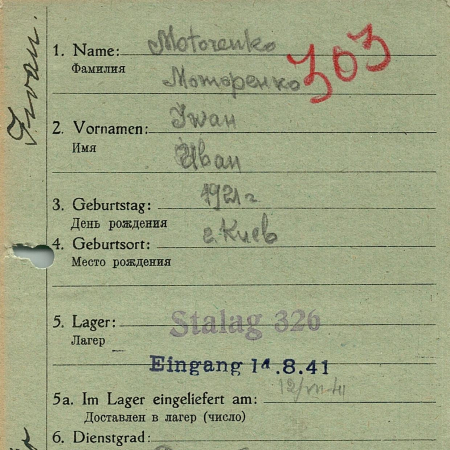 Iwan.
1. Name: Motorenko
Фамилия
Моторенко 303
2. Vornamen: Iwan
Имя
Иван
3. Geburtstag: 1921 г
День рождения
4. Geburtsort: г. Киев
Место рождения
5. Lager: Stalag 326
Лагер
Eingang 14.8.41
5a. Im Lager eingeliefert am:
Доставлен в лагер (число)
6. Dienstgrad: